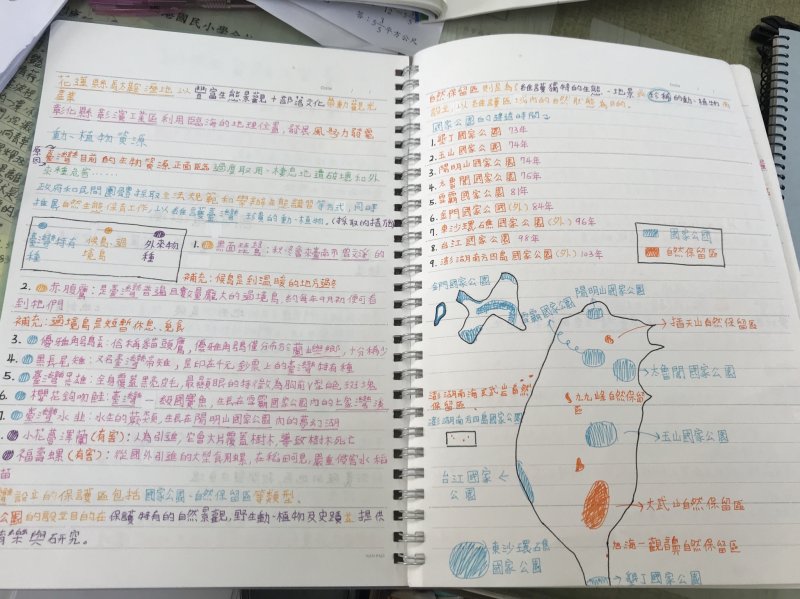 花蓮縣馬太鞍溼地以豐富生態景觀+部落文化帶動觀光
產業
彰化縣彰濱工業區利用臨海的地理位置,發展風勢力發電
動、植物資源
原因
臺灣目前的生物資源正面臨過度取用、棲息地遭破壞和外
來種危害……
政府和民間團體採取立法規範和舉辦生態講習等方式,同時
推展自然生態保育工作,以維護臺灣珍貴的動、植物。(採取的措施)
臺灣特有種
候鳥、過境鳥
外來物種
1. 黑面琵鷺:秋冬會來臺南市曾文溪的
補充:候鳥是到溫暖的地方過冬
2. 赤腹鷹:是臺灣普遍且數量龐大的過境鳥,約每年9月初便可看
到牠們
補充:過境鳥是短暫休息、覓食
3. 優雅角鴞:俗稱貓頭鷹,優雅角鴞僅分布於蘭山與鄉,十分稀少
4. 黑長尾雉:又名臺灣帝雉,是印在千元鈔票上的臺灣特有種
5. 臺灣黑熊:全身覆蓋黑色毛,最顯眼的特徵為胸前V型色斑塊
櫻花鉤吻鮭:臺灣一級國寶魚,生長在雪霸國家公園內的七家灣溪
臺灣水韭:水生的蕨類,生長在陽明山國家公園內的夢幻湖
小花蔓澤蘭(有害):人為引進,它會大片覆蓋樹木,導致樹木死亡
福壽螺(有害):從國外引進的大型食用螺,在稻田可見,嚴重侵害水稻
苗
灣設立的保護區包括國家公園、自然保留區等類型。
公園的設立目的在保護特有的自然景觀,野生動、植物及史蹟並提供
育樂與研究。
自然保留區則是為了維護獨特的生態、地景或珍稀的動、植物而
設立,以維護區域內的自然狀態為目的。
國家公園的建造時間↓
1. 墾丁國家公園 73年
2. 玉山國家公園 74年
3. 陽明山國家公園 74年
4. 太魯閣國家公園 75年
5. 雪霸國家公園 81年
6. 金門國家公園(外) 84年
7. 東沙環礁國家公園(外) 96年
8. 台江國家公園 98年
9. 澎湖南方四島國家公園(外) 103年
國家公園
自然保留區
金門國家公園
陽明山國家公園
雪霸國家公園
插天山自然保留區
太魯閣國家公園
澎湖南海玄武岩自然
保留區
九九峰自然保
留區
澎湖南方四島國家公園
玉山國家公園
台江國家
公園
大武山自然保留區
東沙環礁
國家公園
旭海-觀音鼻自然保留區
墾丁國家公園